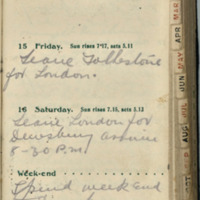 15 Friday. Sun rises 7.17, sets 5.11
Leave Folkestone
for London.
16 Saturday. Sun rises 7.15, sets 5.13
Leave London for
Dewsbury arrive
8-30 P.M.
Week-end
Spend week end
MAR
APR
MAY
JUN
JUL
AUG
SEP
OCT